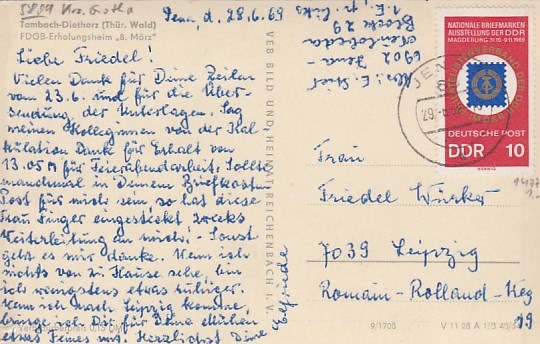 5809 Krs. Gotha
Tambach-Dietharz (Thür. Wald)
FDGB-Erholungsheim „8. März"
Jena, d. 28.6.69
Liebe Friedel!
Vielen Dank für Deine Zeilen
vom 23.6. und für die Über-
sendung der Unterlagen. Sag
meinen Kolleginnen von der Kal-
kulation Dank für Erhalt von
13.05 M für Feierabendarbeit. Sollte
manchmal in Deinem Briefkasten
Post für mich sein, so hat diese
Frau Finger eingesteckt zwecks
Weiterleitung an mich. - Sonst
geht es mir danke. Wenn ich
nichts von zu Hause sehe, bin
ich wenigstens etwas ruhiger.
Wenn ich nach Leipzig komme,
bringe ich Dir für Deine Mühen
etwas Feines mit. Herzlichst Deine
Elfriede
Verbraucherpreis 0,15 DM
VEB BILD UND HEIMAT REICHENBACH I. V.
Abs.: E.
6902 Jena-
Neulobeda
Block 29
1. E., pt. links
NATIONALE BRIEFMARKEN-
AUSSTELLUNG DER DDR
MAGDEBURG 31.10.-9.11.1969
DEUTSCHE POST
DDR 10
JENA
29.
Frau
Friedel
7039 Leipzig
Romain-Rolland-Weg
19
9/1708
V 11 28 A 1/3